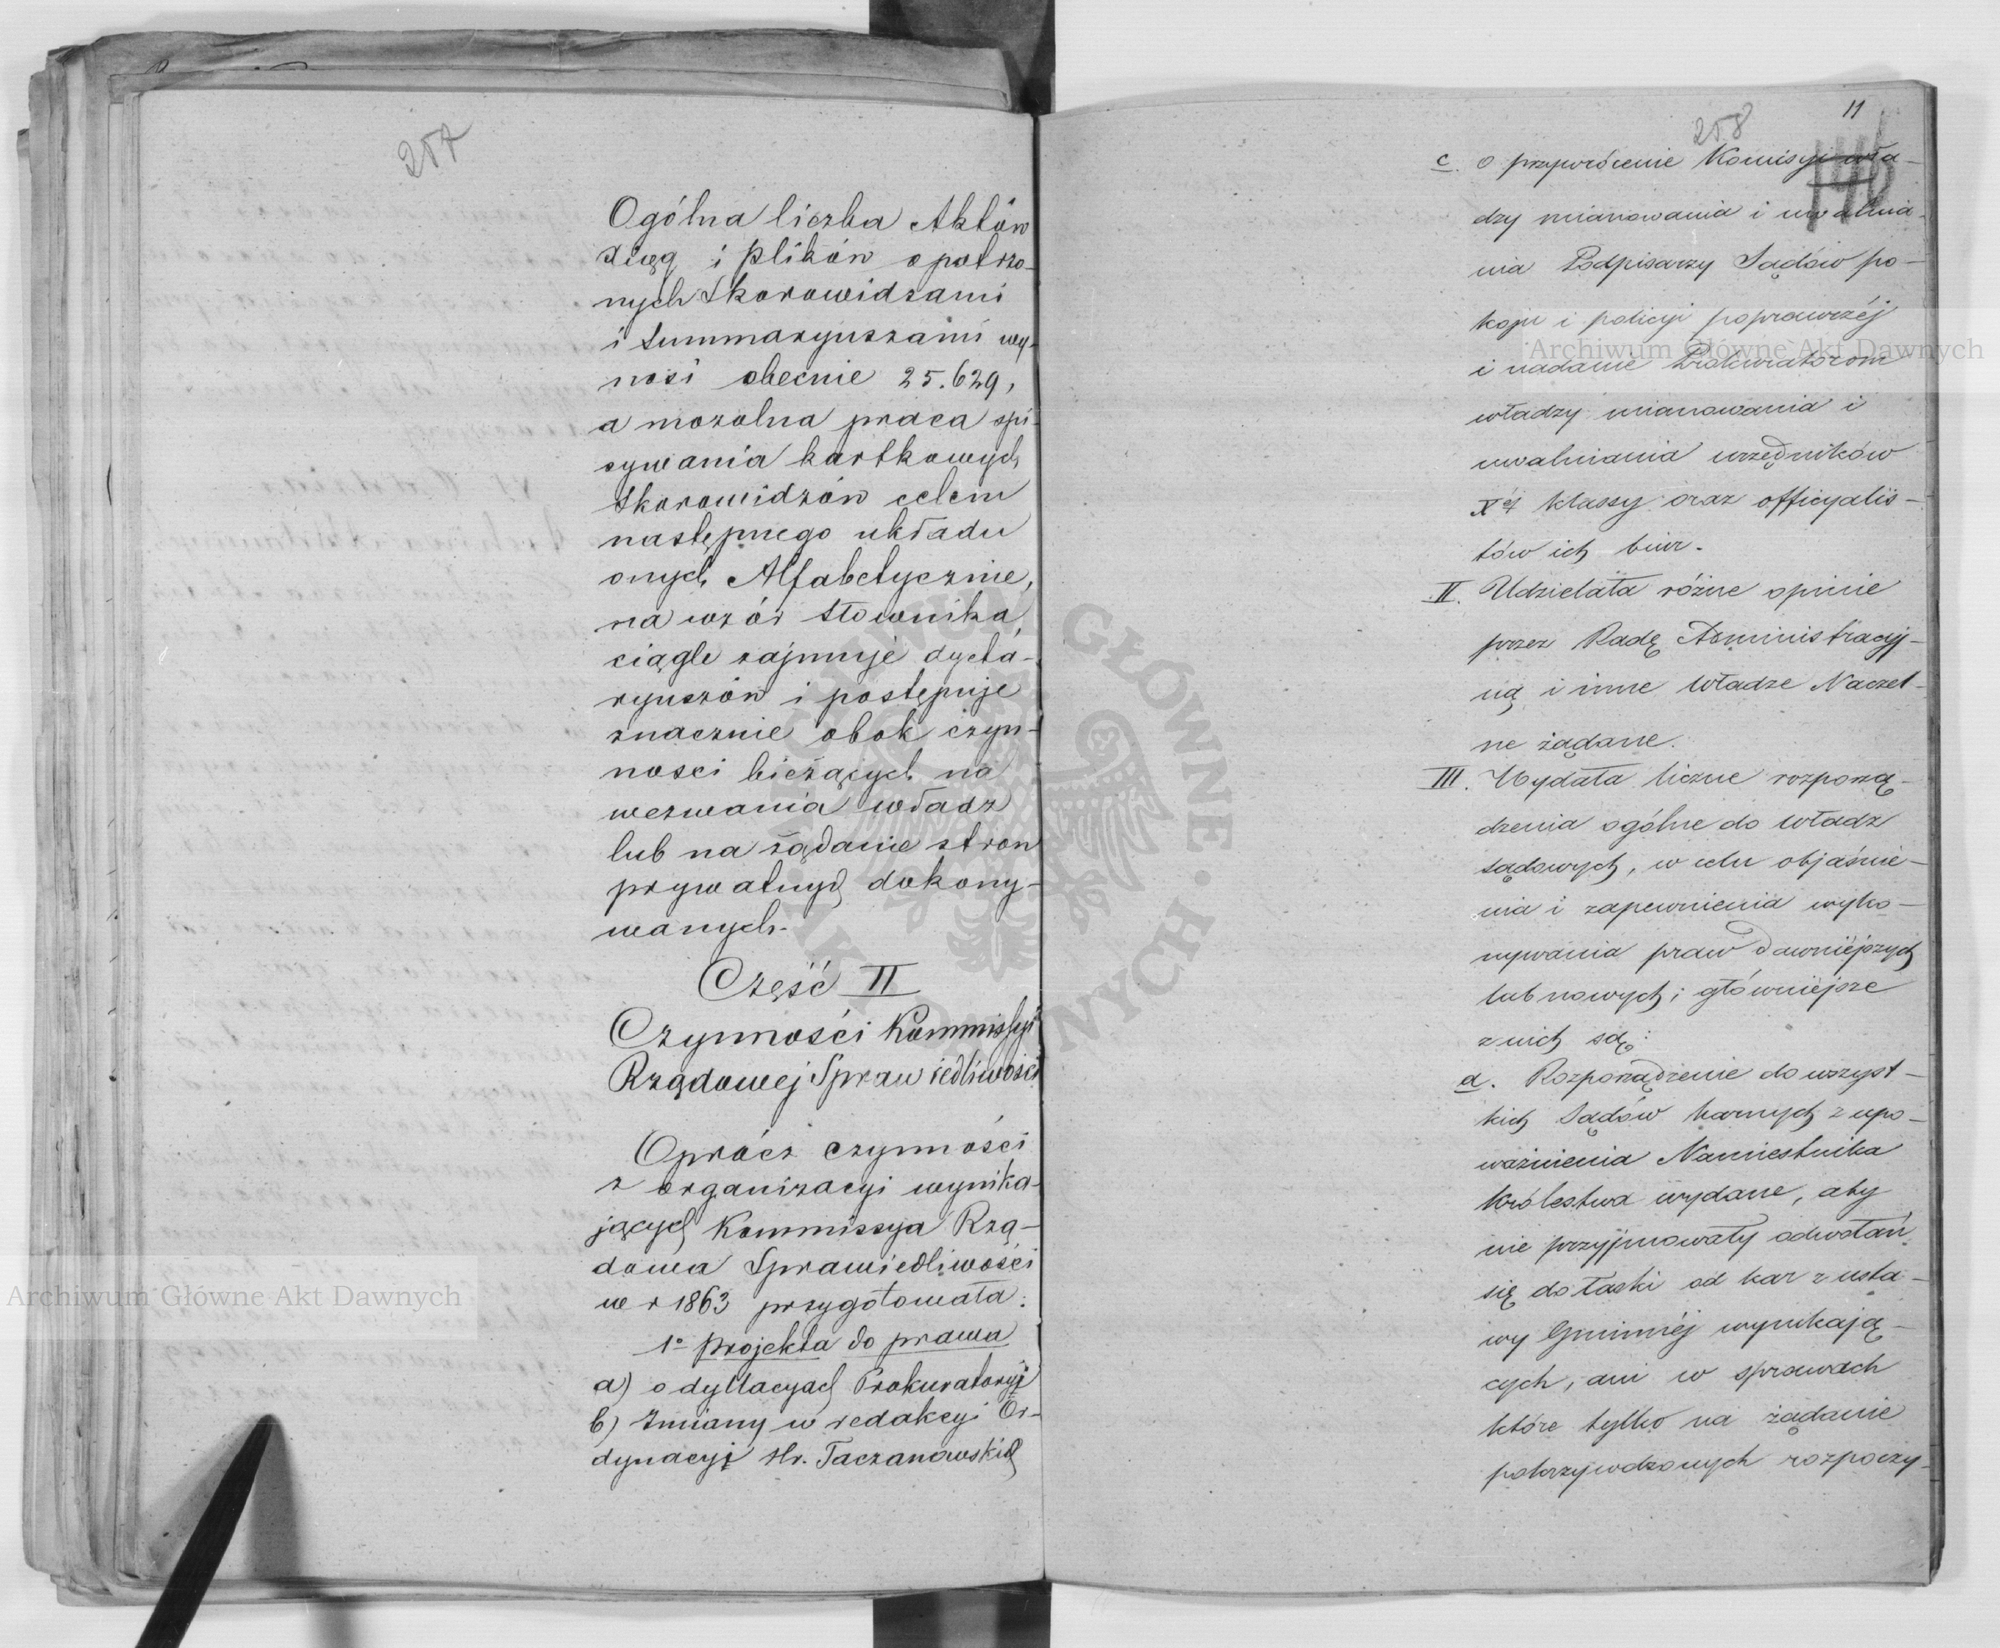 257
Ogólna liczba Aktów
Xiąg i Plików opatrzo-
nych Skorowidzami
i Summaryuszami wy-
nosi obecnie 25.629,
a mozolna praca spi-
sywania kartkowych
Skorowidzów celem
następnego układu
onych Alfabetycznie,
na wzór Słownika,
ciągle zajmuje dyeta-
ryuszów i postępuje
znacznie obok czyn-
ności bieżących na
wezwania władz
lub na żądanie stron
prywatnych dokony-
wanych.
Część II
Czynności Kommissyi
Rządowej Sprawiedliwości
Oprócz czynności
z organizacyi wynika-
jących Kommissya Rzą-
dowa Sprawiedliwości
w r 1863 przygotowała:
1° projekta do prawa
a) o dyllacyach Prokuratoryi
b) Zmiany w redakcyi Or-
dynacyi Hr. Taczanowskich
11
258
146
c. o przywrócenie Komisyi wła-
dzy mianowania i uwalnia-
nia Podpisarzy Sądów po-
koju i policyi poprawczéj
i nadanie Prokuratorom
władzy mianowania i
uwalniania urzędników
Xéj klassy oraz officyalis-
tów ich biur.
II. Udzielała różne opinie
przez Radę Administracyj-
ną i inne Władze Naczel-
ne żądane.
III. Wydała liczne rozporzą-
dzenia ogólne do władz
sądowych, w celu objaśnie-
nia i zapewnienia wyko-
nywania praw dawniejszych
lub nowych; główniejsze
z nich są:
a. Rozporządzenie do wszyst-
kich Sądów karnych z upo-
ważnienia Namiestnika
Królestwa wydane, aby
nie przyjmowały odwołań
się do łaski od kar z usta-
wy Gminnéj wynikają-
cych, ani w sprawach
które tylko na żądanie
pokrzywdzonych rozpoczy-
Archiwum Główne Akt Dawnych
Archiwum Główne Akt Dawnych